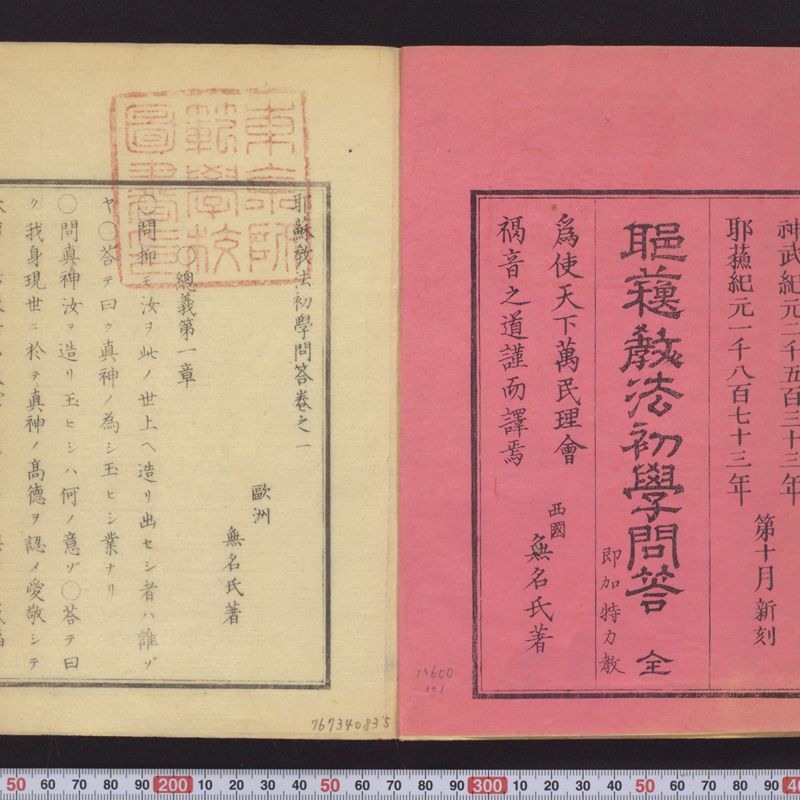 神武紀元二千五百三十三年
第十月新刻
耶蘓紀元一千八百七十三年
耶蘓教法初學問答 全
即加特力教
為使天下萬民理會
禍音之道謹而譯焉
西國
無名氏著
耶蘇教法初學問答卷之一
歐洲
無名氏著
〇總義第一章
〇問抑モ汝ヲ此ノ世上ヘ造リ出セシ者ハ誰ゾ
ヤ〇荅テ曰ク真神ノ為シ玉ヒシ業ナリ
〇問真神汝ヲ造リ玉ヒシハ何ノ意ゾ〇荅テ曰
ク我身現世ニ於テ真神ノ髙德ヲ認メ愛敬シテ
東京師
範學校
圖書印
767340835
50 60 70 80 90 200 10 20 30 40 50 60 70 80 90 300 10 20 30 40 50 60 70 80 90